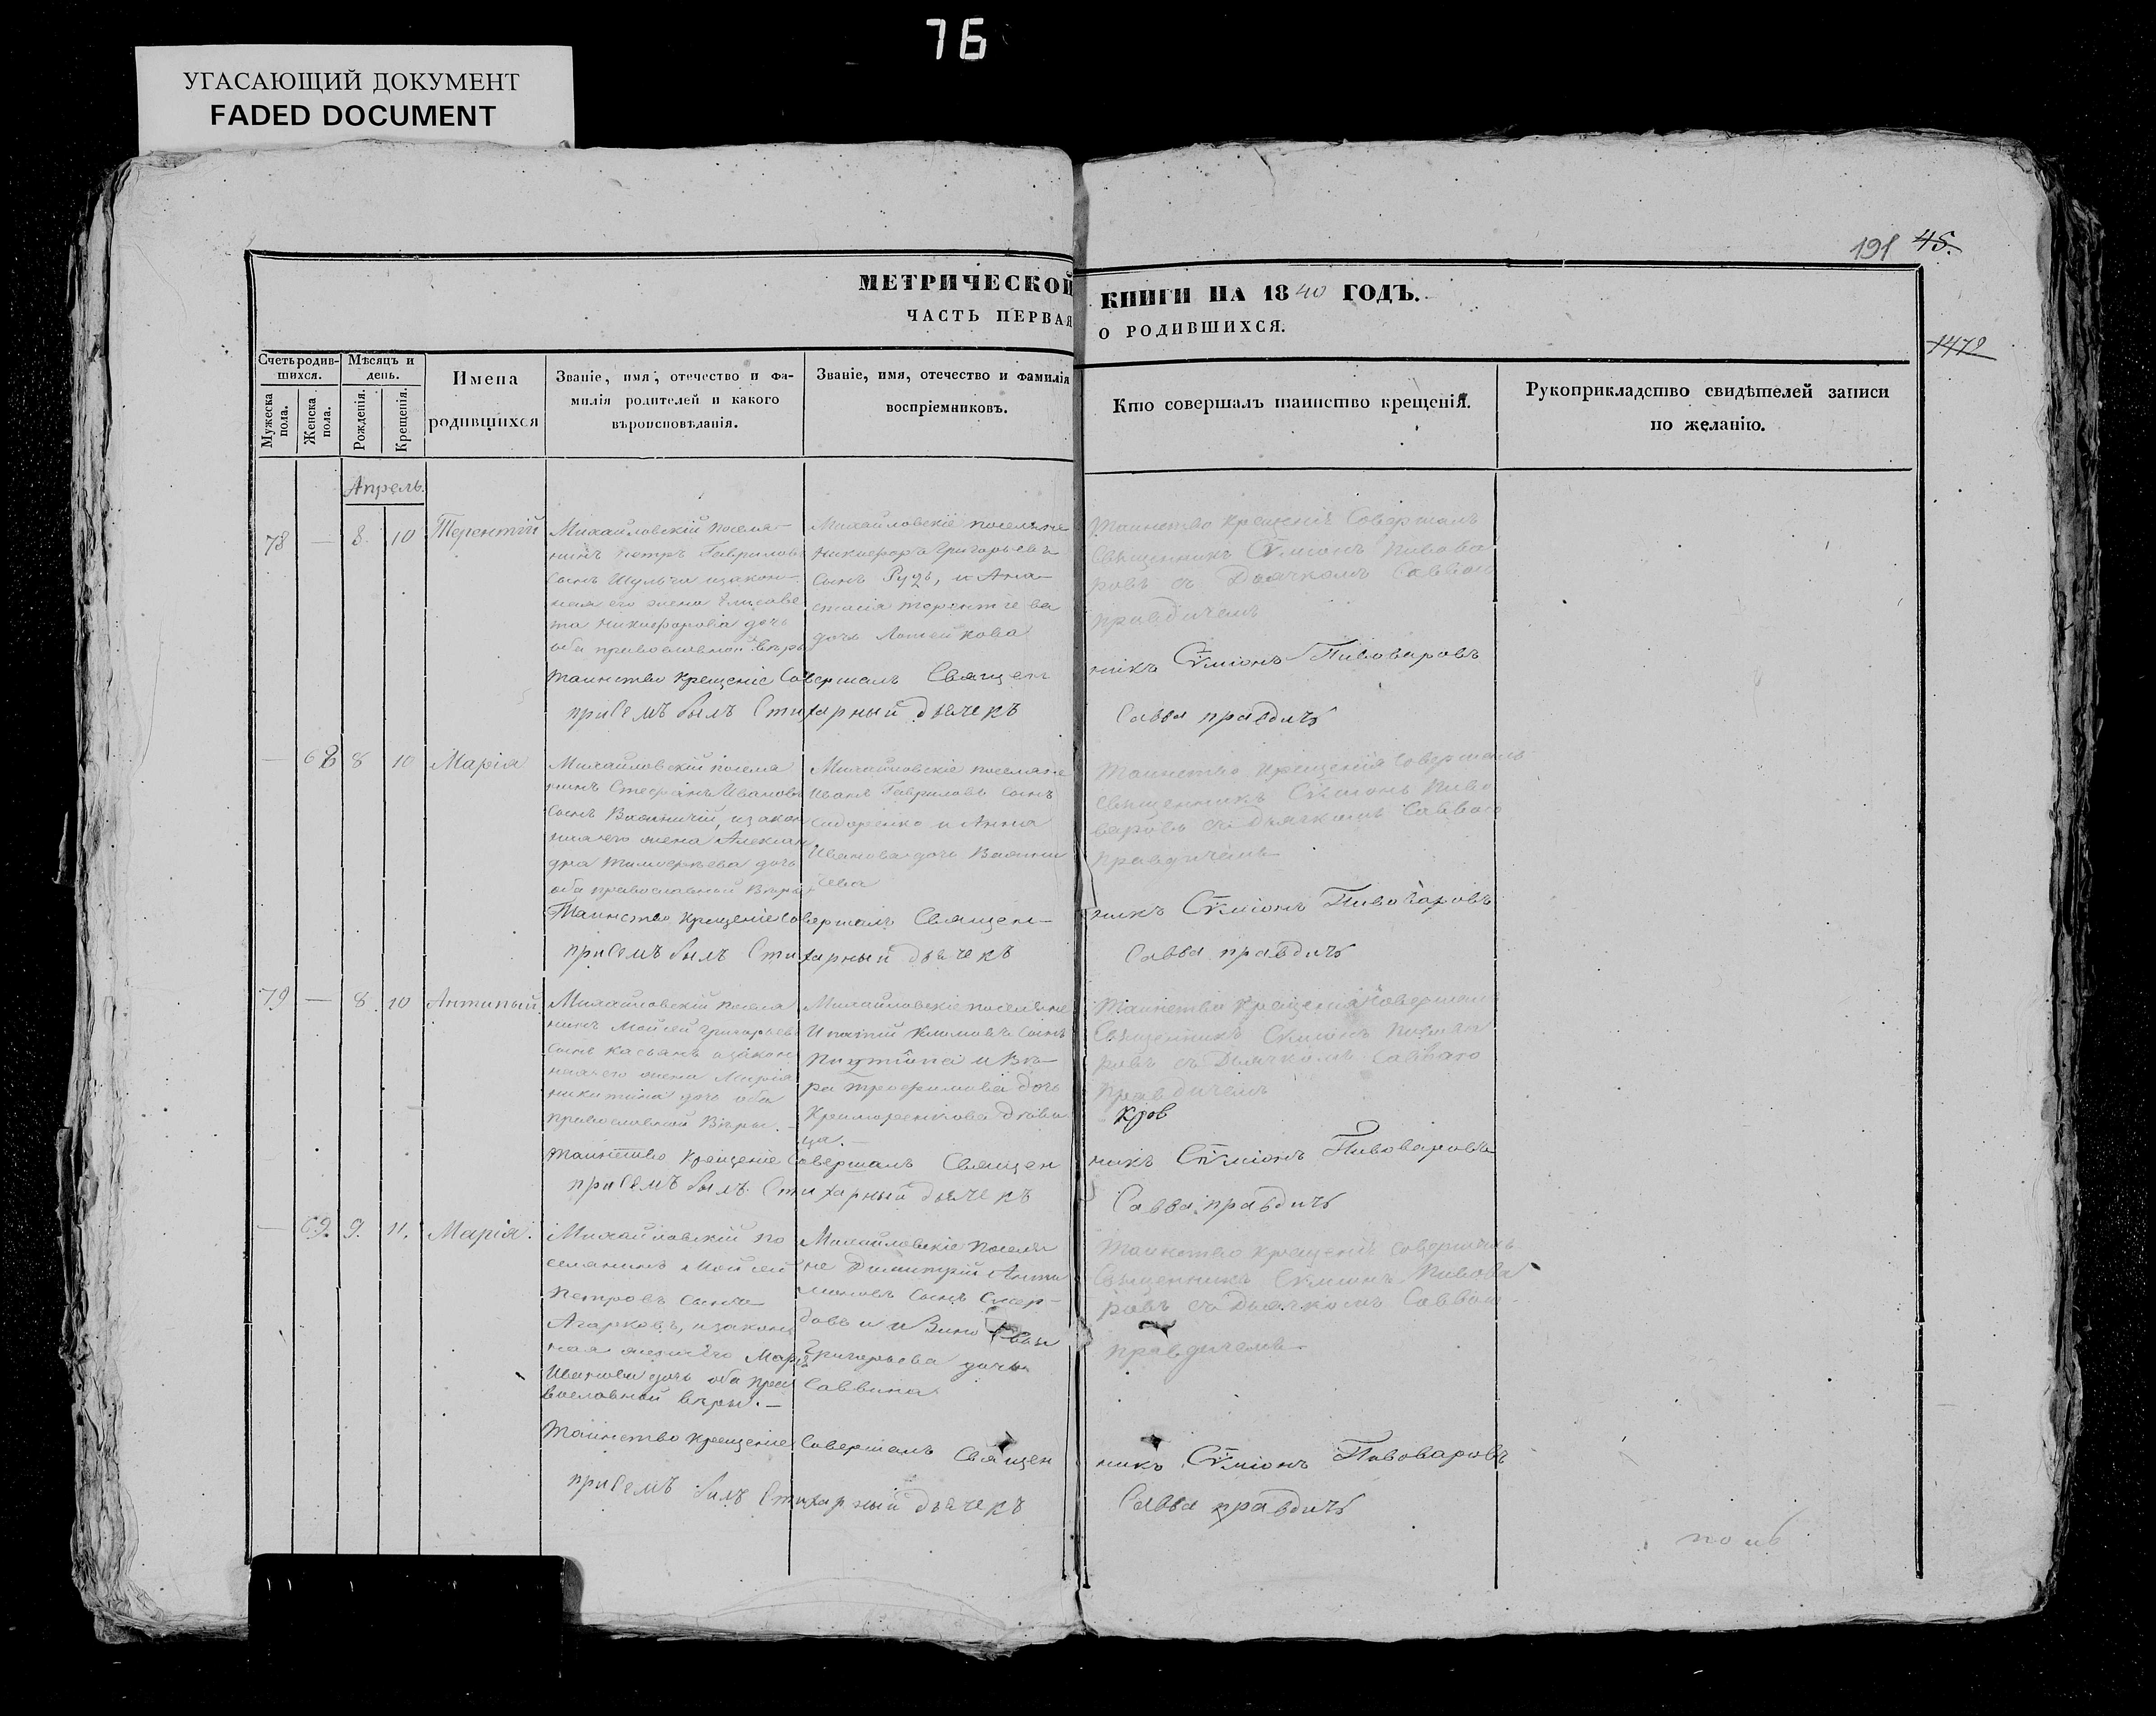 76
УГАСАЮЩИЙ ДОКУМЕНТ
FADED DOCUMENT
191 45.
1472
МЕТРИЧЕСКОЙ КНИГИ НА 1840 ГОДЪ.
ЧАСТЬ ПЕРВАЯ О РОДИВШИХСЯ.
Счетъ родившихся.
Мужеска пола.
Женска пола.
Мѣсяцъ и день.
Рожденія.
Крещенія.
Имена родившихся
Званіе, имя, отечество и фамилія родителей и какого вѣроисповѣданія.
Званіе, имя, отечество и фамилія воспріемниковъ.
Кто совершалъ таинство крещенія.
Рукоприкладство свидѣтелей записи по желанію.
Апрель.
78 — 8. 10 Терентій
Михайловскій поселя-
нинъ Петръ Гавриловъ
сынъ Шульга изакон-
ная его жена Елисаве
та Никифорова дочь
оба православной вѣры
Михайловскіе поселяне
Никифоръ Григорьевъ
сынъ Рудь, и Ана-
стасія Терентіева
дочь
Таинство крещенія Совершалъ
Священникъ Сѵмеонъ Пивова
ровъ съ Дьячкомъ Саввою
Правдичемъ
Таинство крещеніе Совершалъ Священ никъ Сѵміонъ Пивоваровъ
присемъ былъ Стихарный дьячекъ Савва правдичъ
— 68 8 10 Марія
Михайловскій поселя
нинъ Стефанъ Ивановъ
сынъ изакон
ная его жена Алексан
дра Тимофеева дочь
оба православной Вѣры
Михайловскіе поселяне
Иванъ Гавриловъ сынъ
Сидоренко и Анна
Иванова дочь
Таинство крещенія Совершалъ
Священникъ Сѵмеонъ Пиво
варовъ съ Дьячкомъ Саввою
Правдичемъ
Таинство крещеніе Совершалъ Священ- никъ Сѵміонъ Пивоваровъ
присемъ былъ Стихарный дьячекъ Савва правдичъ
79 — 8. 10 Антипый
Михайловскій поселя
нинъ Моисей Григорьевъ
сынъ Касьянъ изакон
ная его жена Марія
Никитина дочь оба
православной Вѣры. —
Михайловскіе поселяне
Ипатій Климовъ сынъ
и Вѣ-
ра Трофимова дочь
дѣви
ца. —
Таинство Крещенія Совершалъ
Священникъ Сѵмеонъ Пивова
ровъ съ Дьячкомъ Саввою
Правдичемъ
Кров
Таинство Крещеніе Совершалъ Священ никъ Сѵміонъ Пивоваровъ
присемъ былъ Стихарный дьячекъ Савва правдичъ
— 69. 9. 11. Марія.
Михайловскій по
селянинъ Моисей
Петровъ сынъ
Агарковъ, изакон
ная жена его Марія
Иванова дочь оба пра
вославной вѣры. —
Михайловскіе поселя
не Димитрій Анти
повъ сынъ
Григорьева дочь
Саввина
Таинство крещенія Совершалъ
Священникъ Сѵмеонъ Пивова
ровъ съ Дьячкомъ Саввою
правдичемъ
Таинство крещеніе Совершалъ Священ никъ Сѵміонъ Пивоваровъ
присемъ былъ Стихарный дьячекъ Савва правдичъ